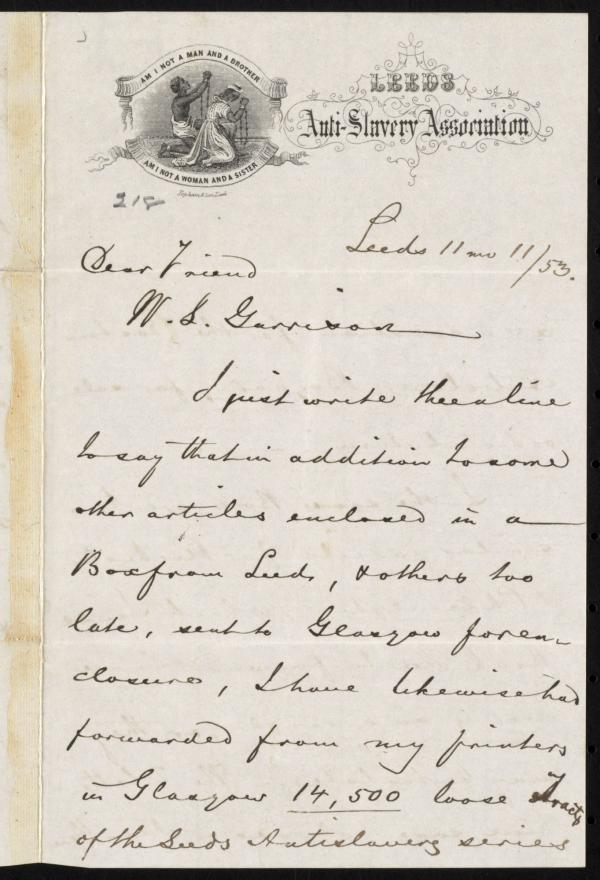 AM I NOT A MAN AND A BROTHER
AM I NOT A WOMAN AND A SISTER
LEEDS
Anti-Slavery Association
218
Leeds 11 mo 11/53.
Dear Friend
W. L. Garrison
I just write thee a line
to say that in addition to some
other articles enclosed in a
Box from Leeds, & others too
late, sent to Glasgow for en-
closure, I have likewise had
forwarded from my printers
in Glasgow 14,500 loose Tracts
of the Leeds Antislavery series